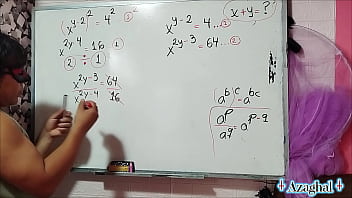 (x^{y-2})^2 = 4^2 ②
x^{2y-4} = 16 ①
② ÷ ①
x^{2y-3} = 64
x^{2y-4} 16
x + y = ?
x^{y-2} = 4 ... ①
x^{2y-3} = 64 ... ②
(a^b)^c = a^{bc}
a^p / a^q = a^{p-q}
Azaghal